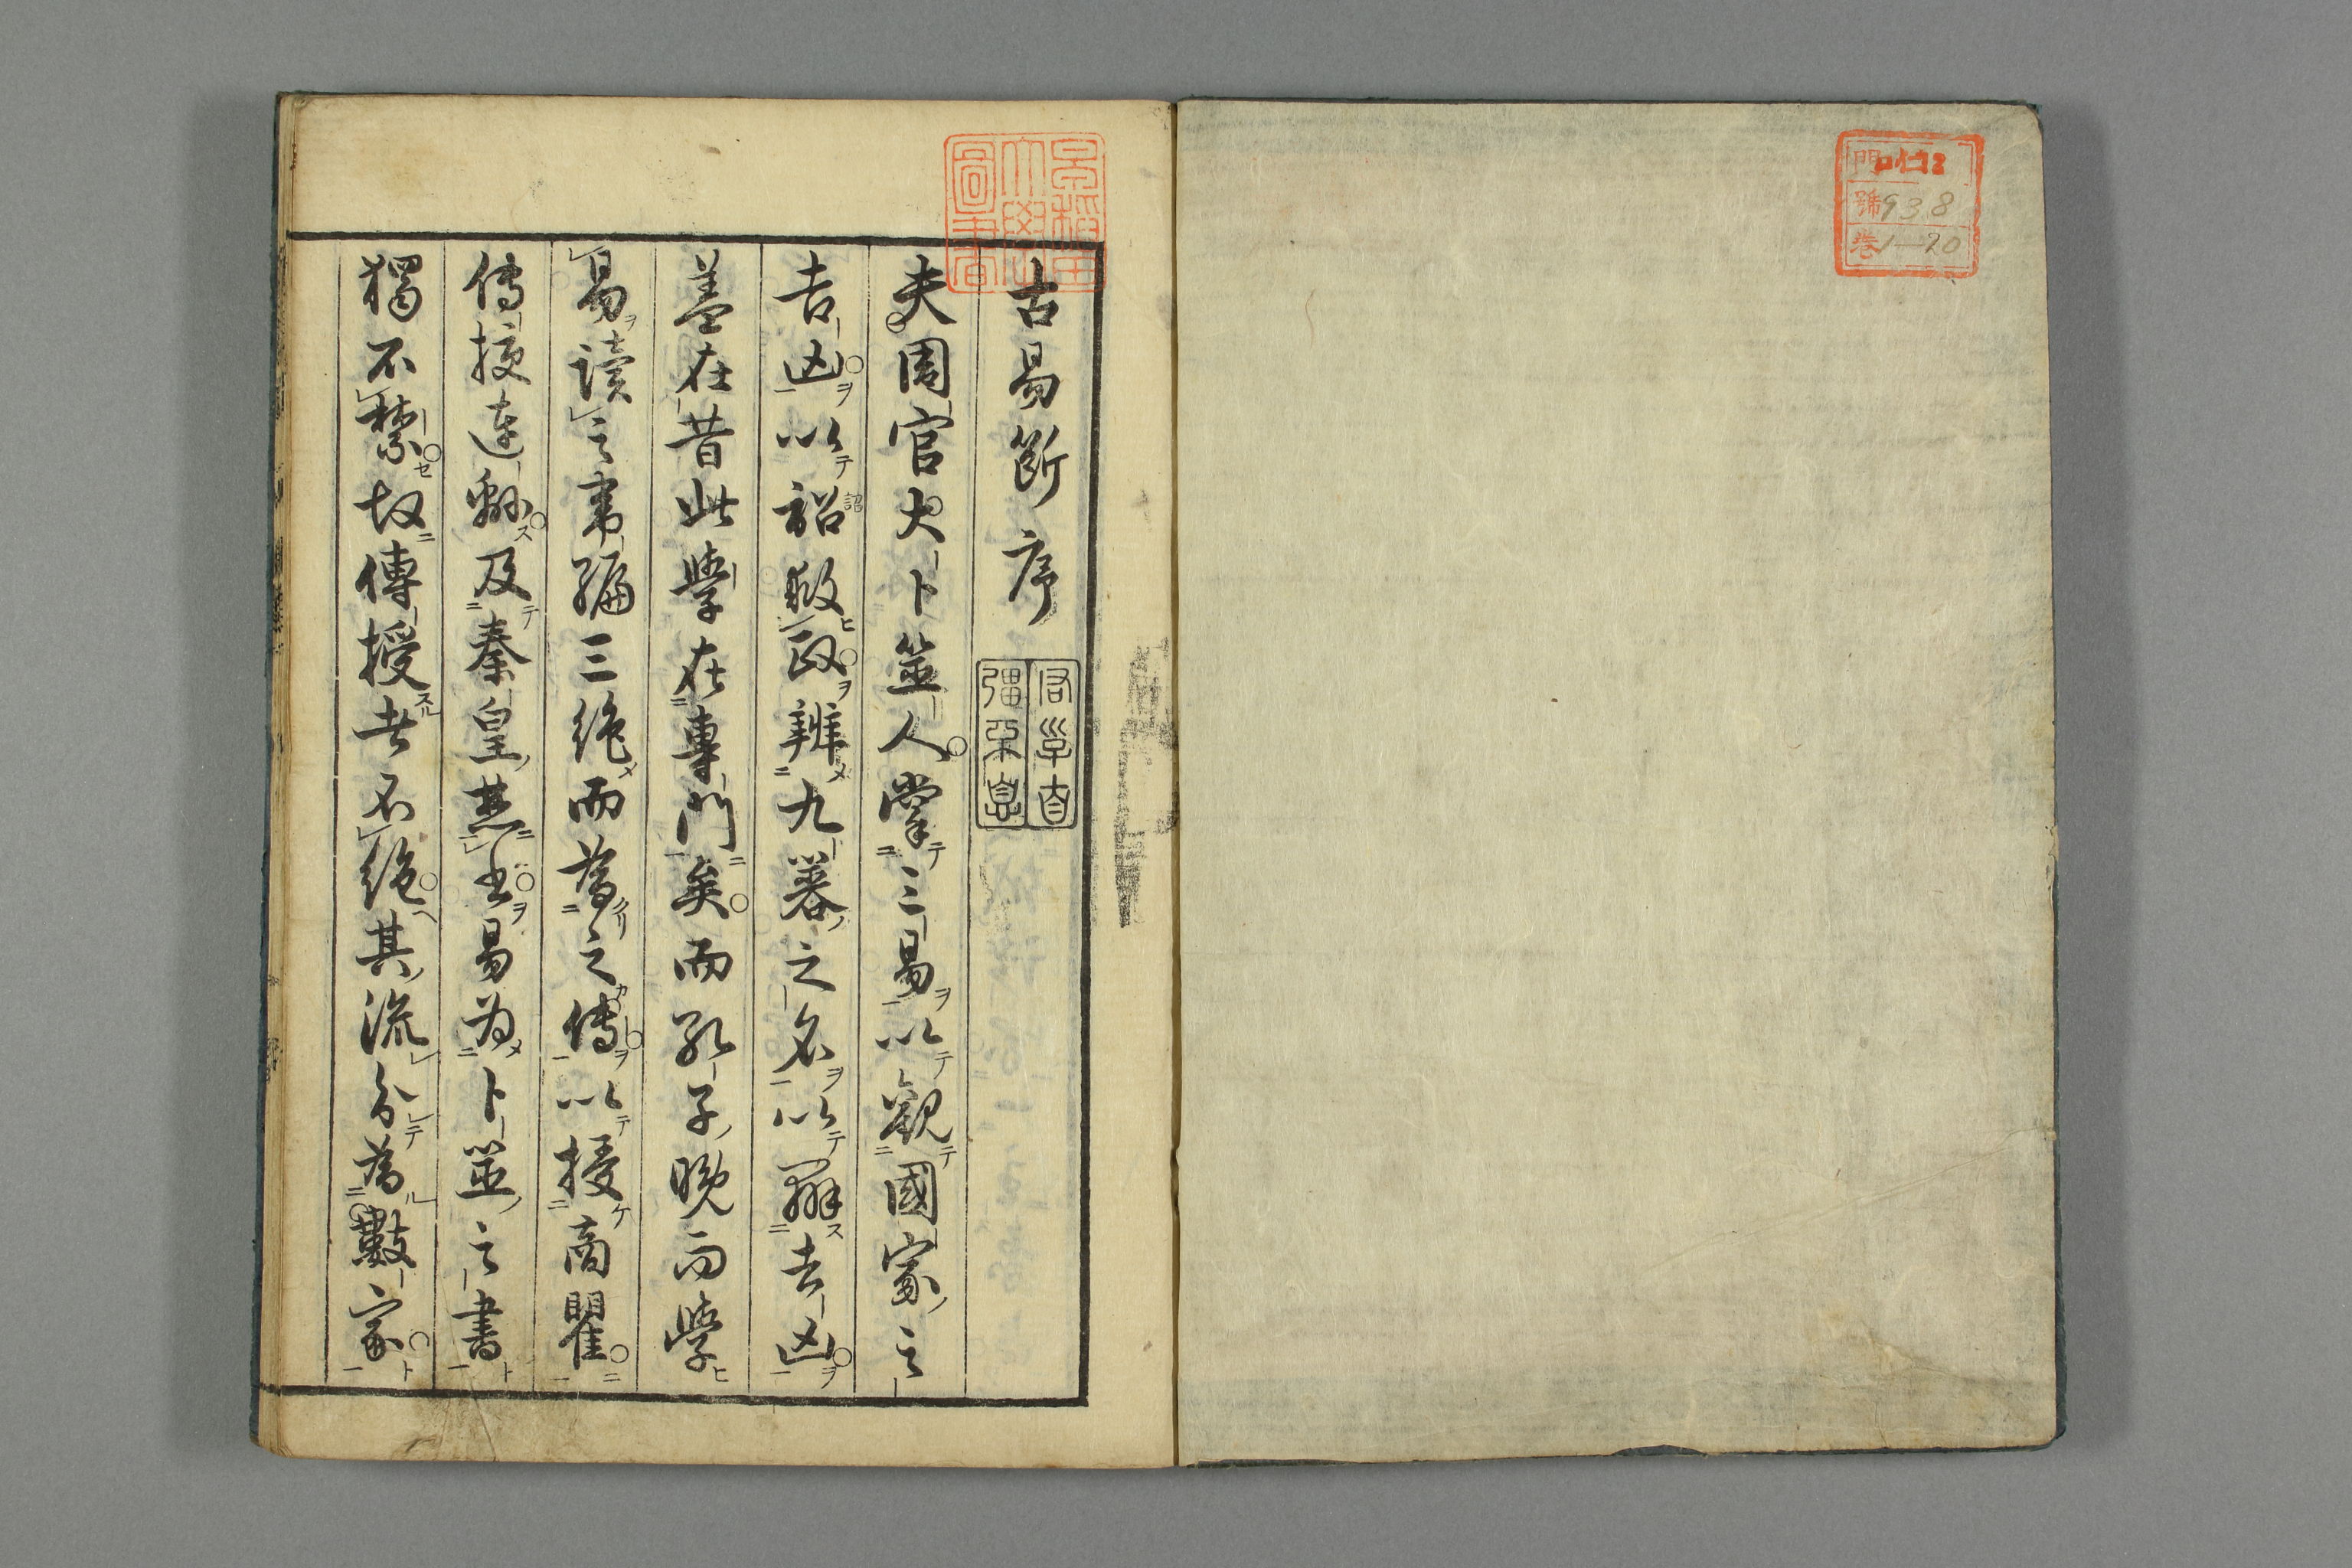 古易斷序
夫周官大卜筮人掌三易以觀國家之
吉凶以詔救政辨九簭之名以辨吉凶
蓋在昔此學在專門矣而孔子晚而學
易讀之韋編三絶而為之傳以授商瞿
傳授連緜及秦皇焚書易為卜筮之書
獨不禁故傳授者不絶其流分為數家
早稻田大學圖書
門 ロ 12
號 938
卷 1-20